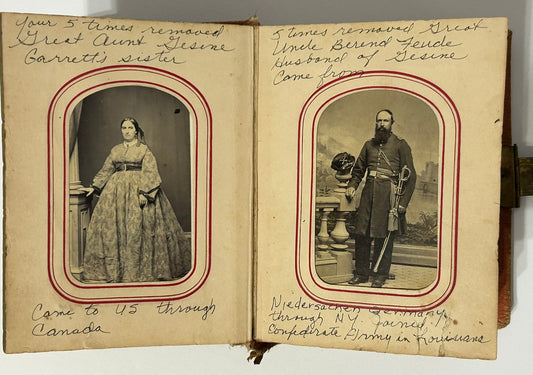 Your 5 times removed
Great Aunt Gesine
Garrett's sister
Came to US through
Canada
5 times removed Great
Uncle Berend Feude
Husband of Gesine
Came from
Niedersachen Germany
through NY joined
Confederate Army in Louisiana